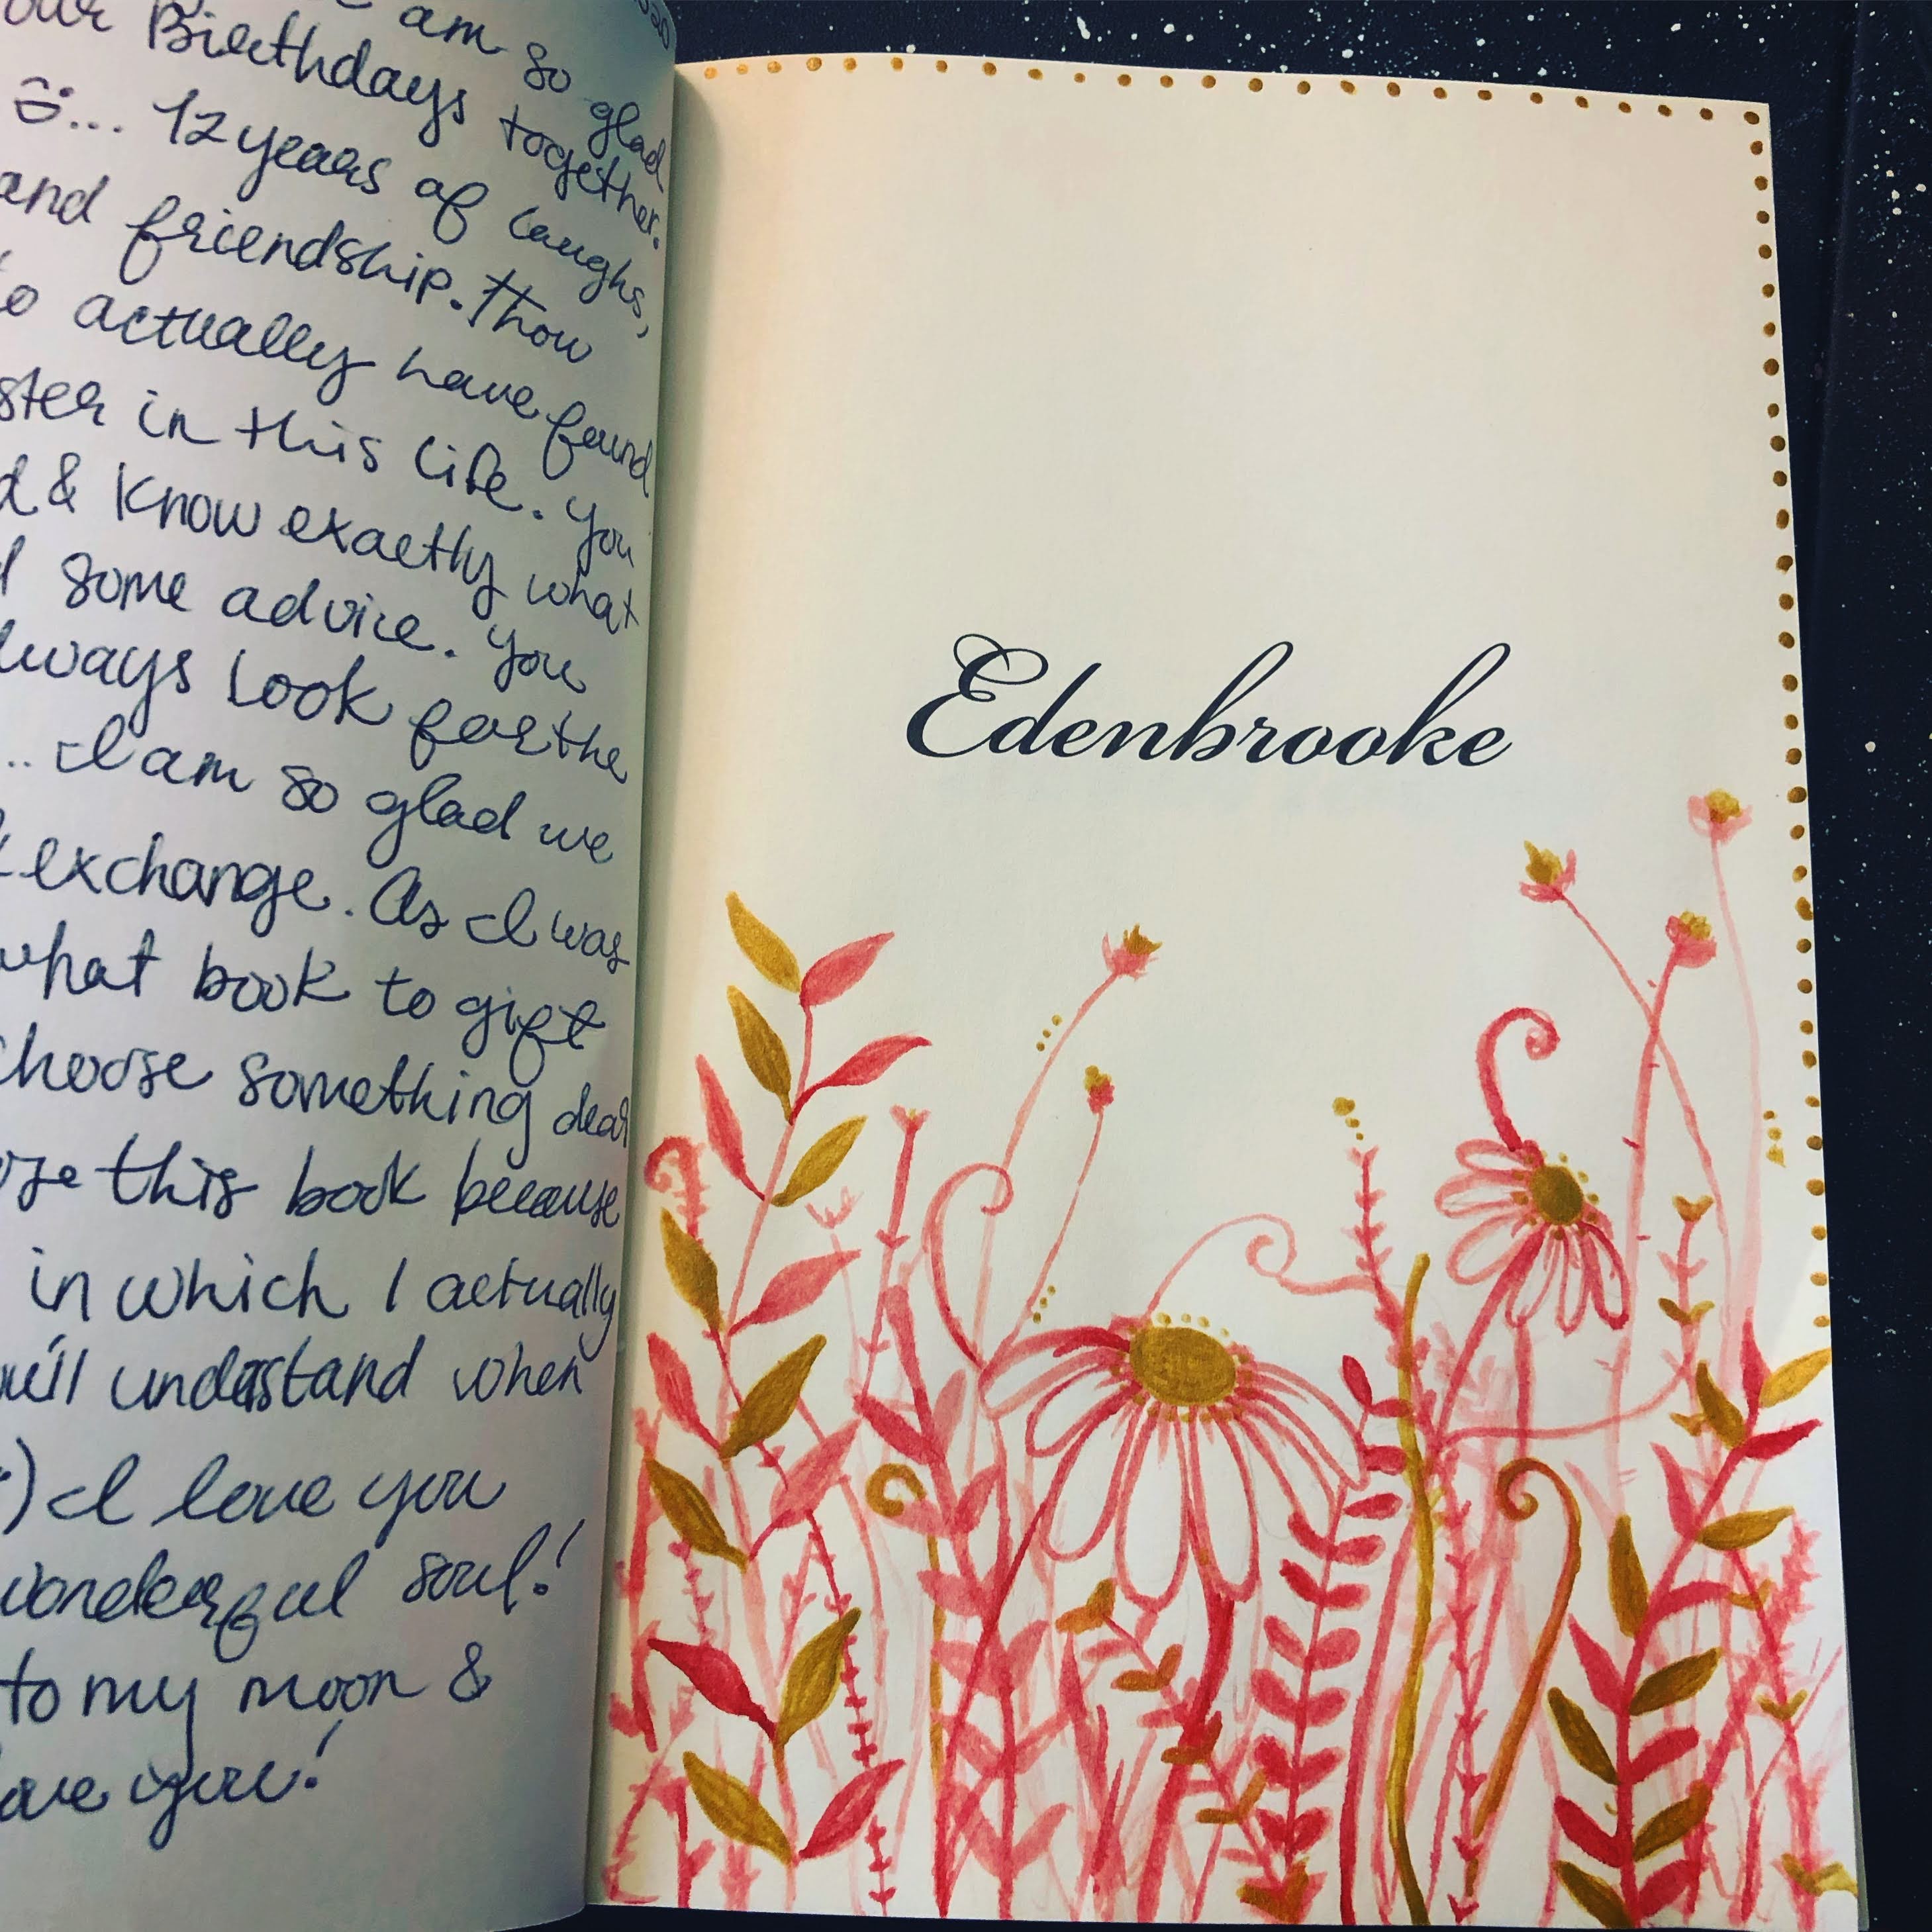 am so glad
our Birthdays together.
... 12 years of laughs,
and friendship. Thow
to actually have found
ster in this life. You
d & know exactly what
some advice. You
lways look for the
... I am so glad we
exchange. As I was
what book to gift
choose something dear
ose this book because
in which I actually
u'll understand when
:) I love you
wonderful soul!
to my moon &
ave you!
Edenbrooke